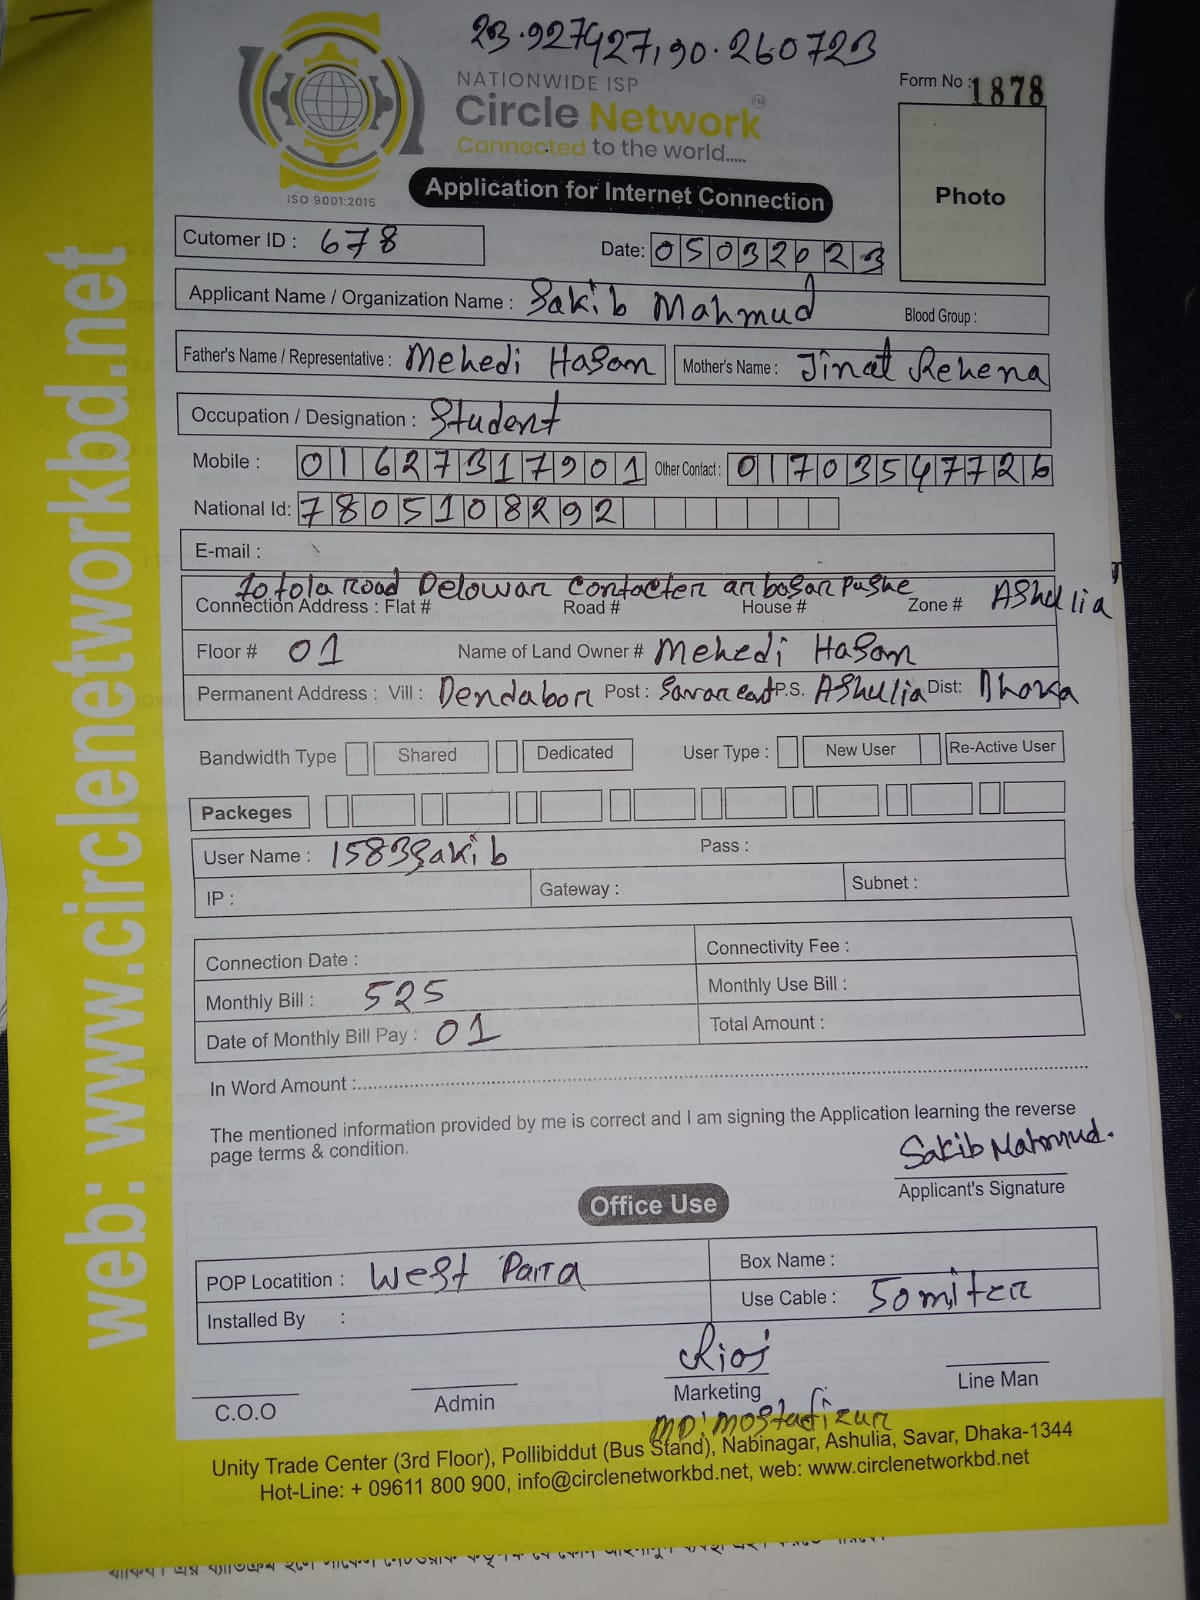 23.927427,90.260723
NATIONWIDE ISP
Circle Network TM
Connected to the world.....
ISO 9001:2015
Form No : 1878
Photo
Application for Internet Connection
Cutomer ID : 678
Date: 05032023
Applicant Name / Organization Name : Sakib Mahmud Blood Group :
Father's Name / Representative : Mehedi Hasan Mother's Name : Jinat Rehena
Occupation / Designation : Student
Mobile : 01627317901 Other Contact : 01703547726
National Id: 7805108292
E-mail :
10 tola road Delowar Contacter ar basar pashe Ashulia
Connection Address : Flat # Road # House # Zone #
Floor # 01 Name of Land Owner # Mehedi Hasan
Permanent Address : Vill : Dendabor Post : Savar cant P.S. Ashulia Dist: Dhaka
Bandwidth Type Shared Dedicated User Type : New User Re-Active User
Packeges
User Name : 1583Sakib Pass :
IP : Gateway : Subnet :
Connection Date : Connectivity Fee :
Monthly Bill : 525 Monthly Use Bill :
Date of Monthly Bill Pay : 01 Total Amount :
In Word Amount :
The mentioned information provided by me is correct and I am signing the Application learning the reverse
page terms & condition.
Sakib Mahmud.
Applicant's Signature
Office Use
POP Locatition : West Parra Box Name :
Installed By : Use Cable : 50 miter
C.O.O Admin Marketing Line Man
MD: Mostafizur
Unity Trade Center (3rd Floor), Pollibiddut (Bus Stand), Nabinagar, Ashulia, Savar, Dhaka-1344
Hot-Line: + 09611 800 900, info@circlenetworkbd.net, web: www.circlenetworkbd.net
web: www.circlenetworkbd.net